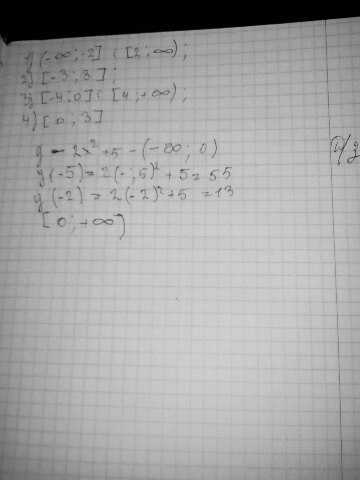 1) (-∞; -2] ; [2; ∞);
2) [-3; 3];
3) [-4; 0] ; [4; +∞);
4) [0; 3]
y = 2x² + 5 - (-∞; 0)
y(-5) = 2(-5)² + 5 = 55
y(-2) = 2(-2)² + 5 = 13
[0; +∞)